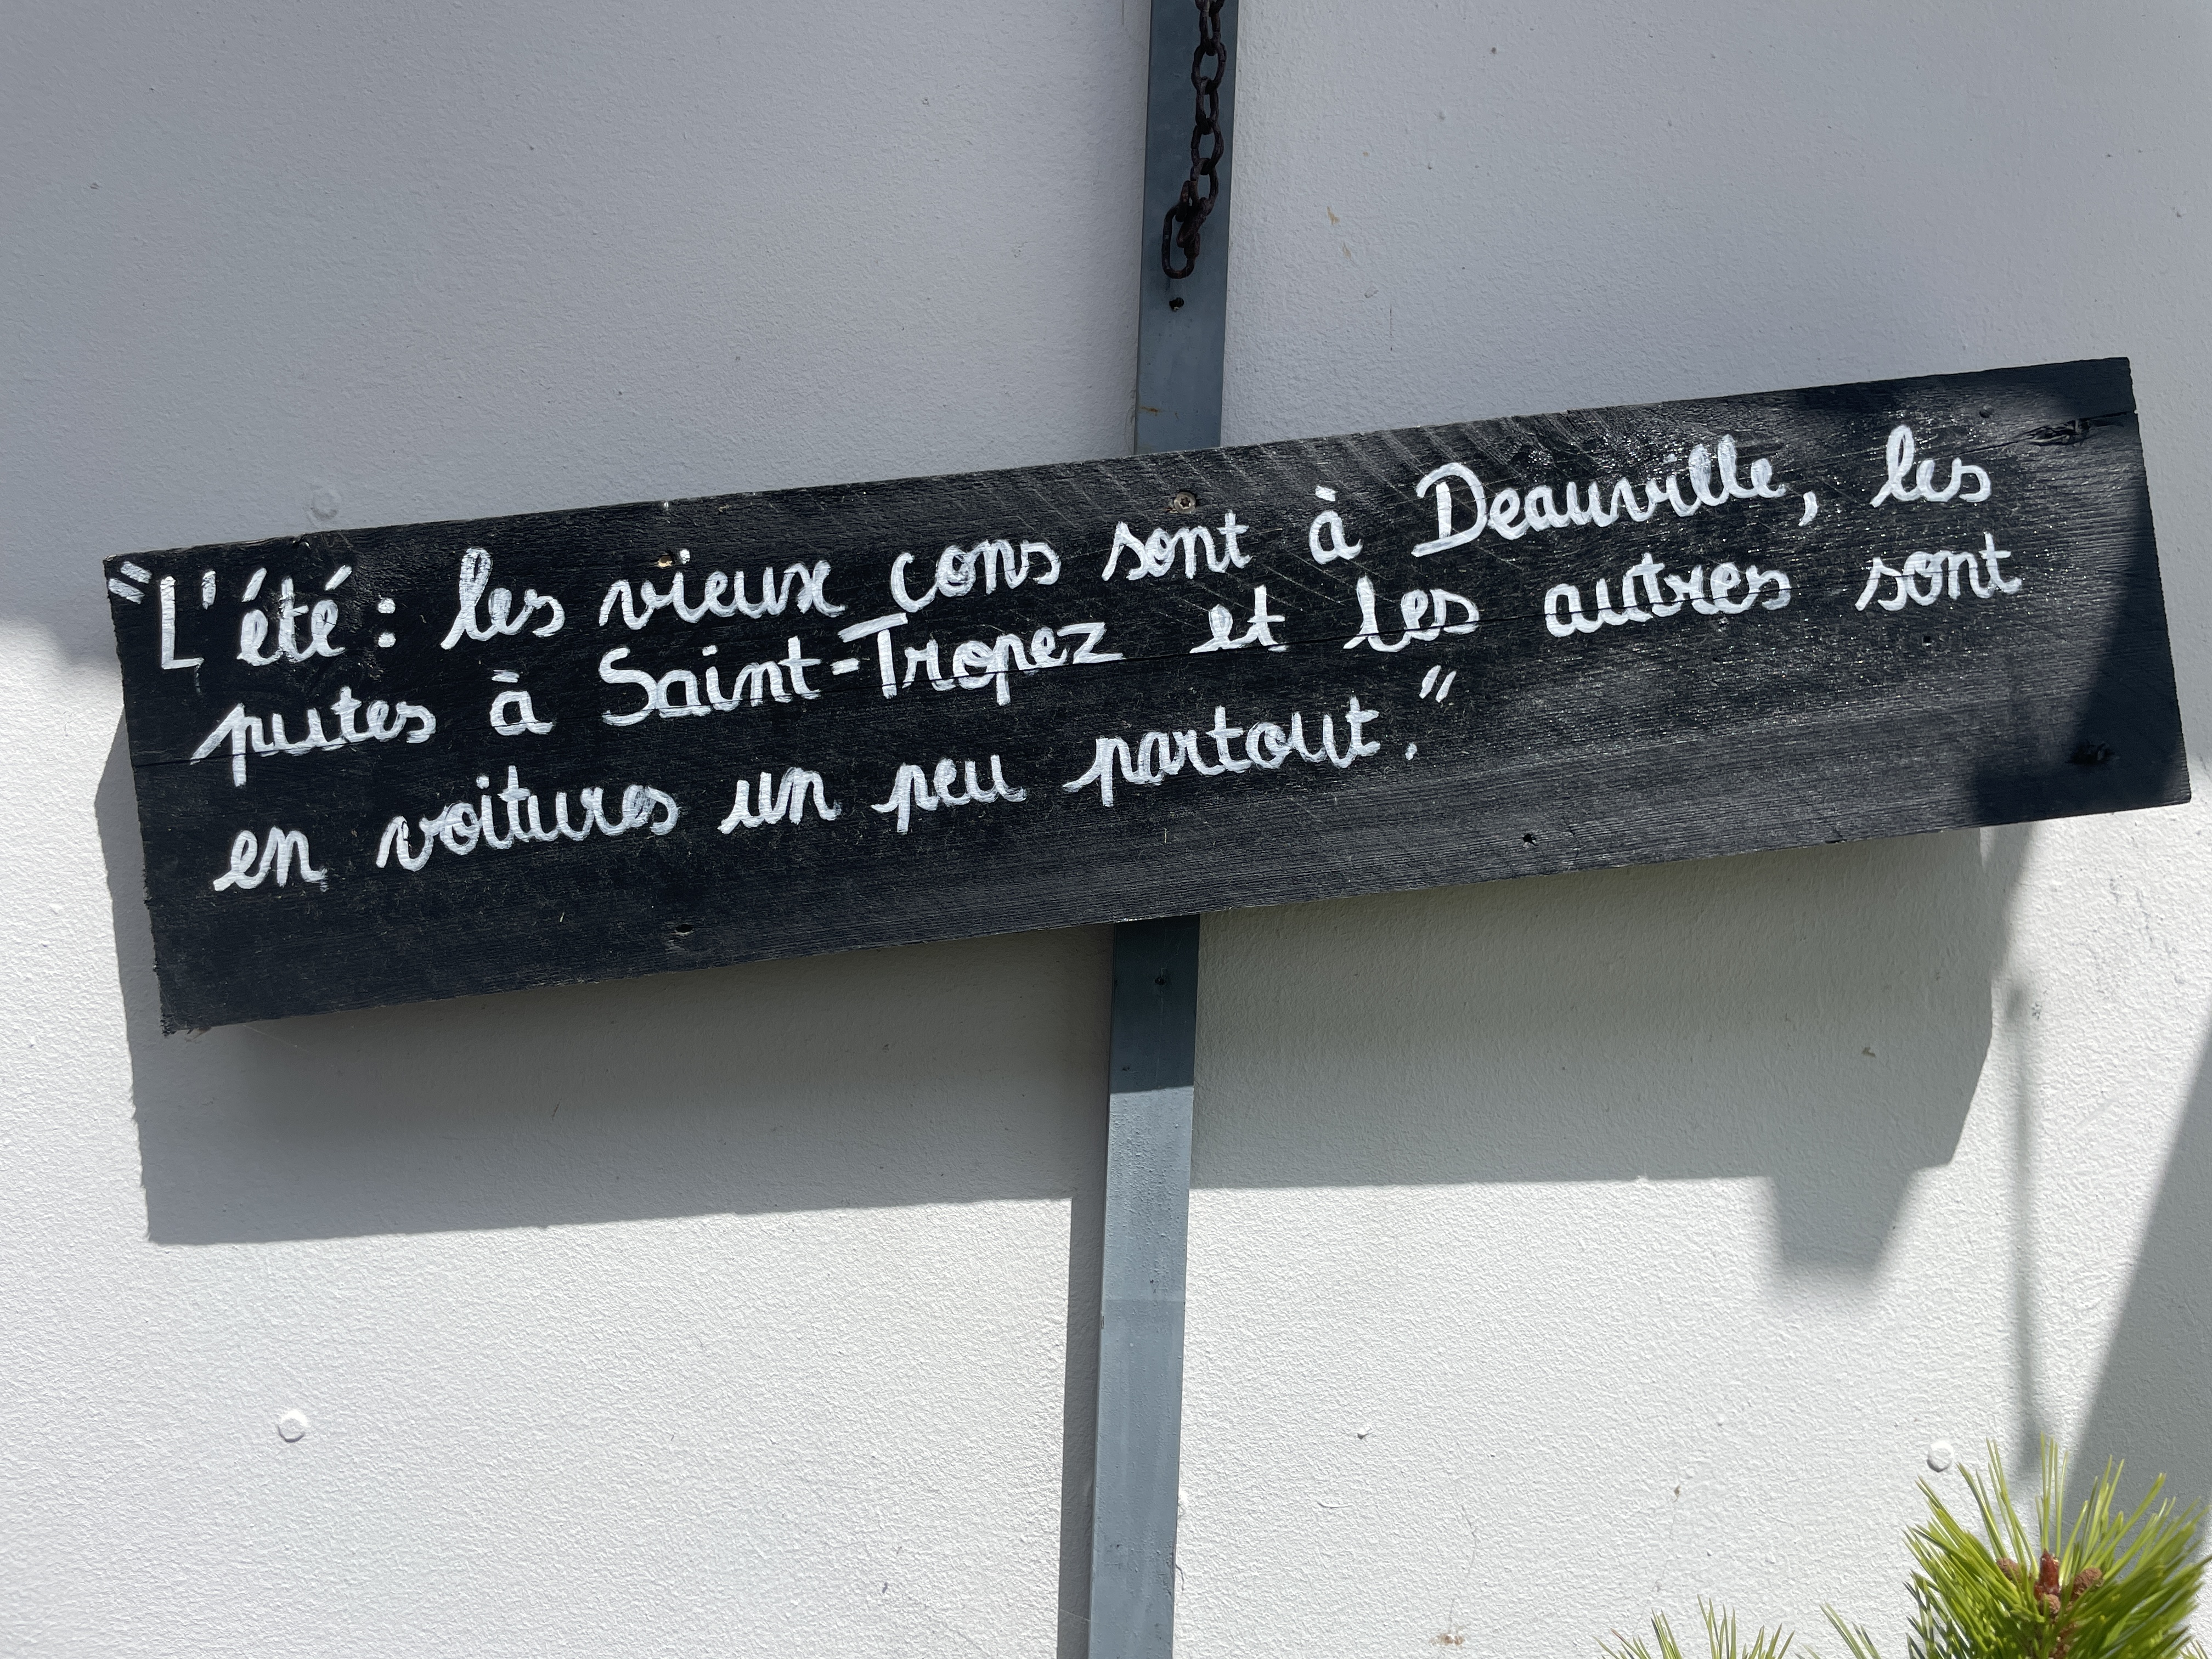 "L'été : les vieux cons sont à Deauville, les
putes à Saint-Tropez et les autres sont
en voitures un peu partout."